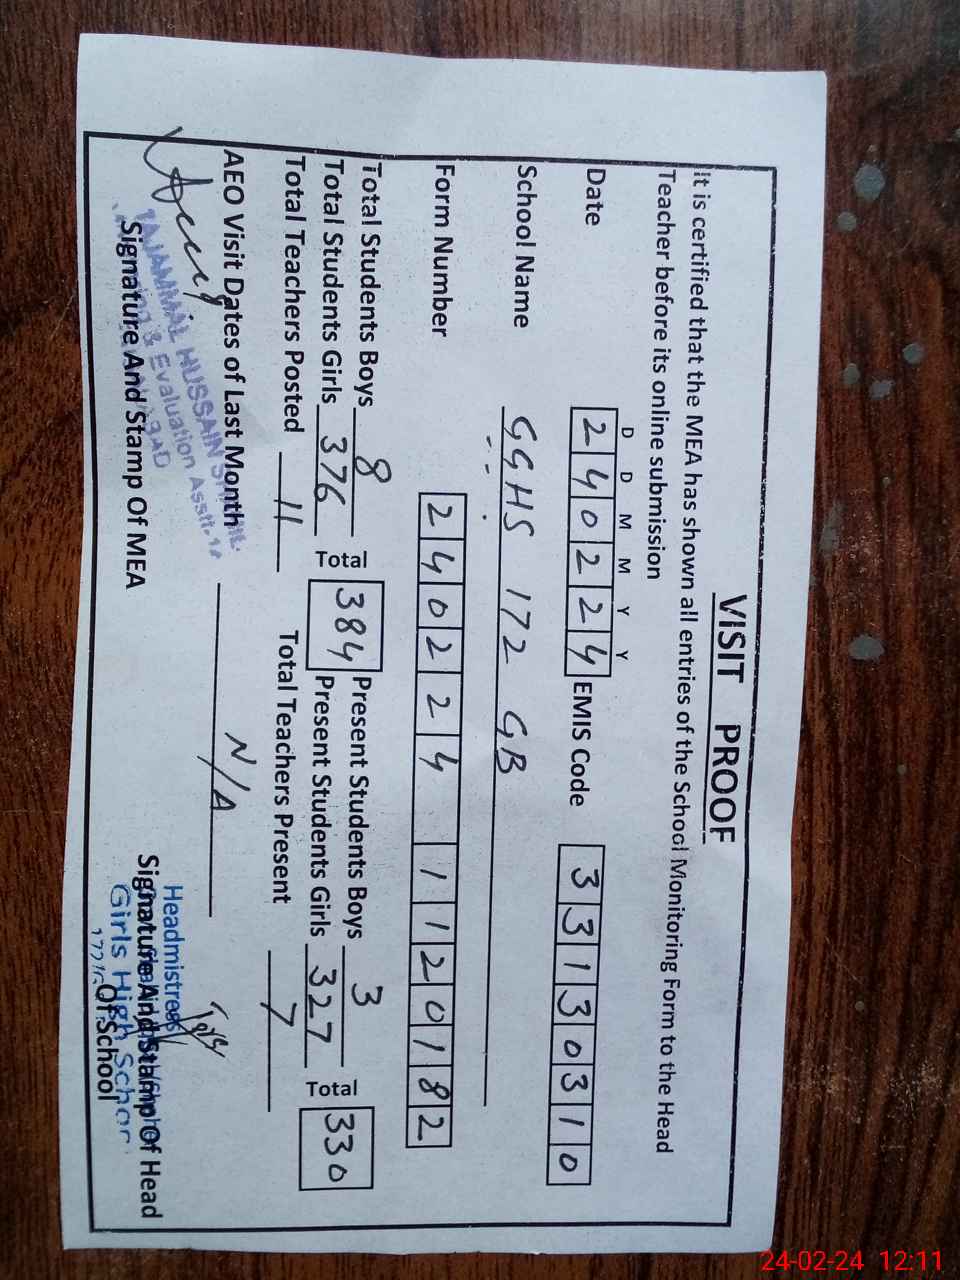 VISIT PROOF
It is certified that the MEA has shown all entries of the School Monitoring Form to the Head
Teacher before its online submission
D D M M Y Y
Date 240224 EMIS Code 33130310
School Name GGHS 172 GB
Form Number 240224 1120182
Total Students Boys 8 Present Students Boys 3
Total Students Girls 376 Total 384 Present Students Girls 327 Total 330
Total Teachers Posted 11 Total Teachers Present 7
AEO Visit Dates of Last Month N/A
TAJAMMAL HUSSAIN
& Evaluation Asstt.
Signature And Stamp Of MEA
Headmistress
Girls High School
Signature And Stamp Of Head
Of School
24-02-24 12:11